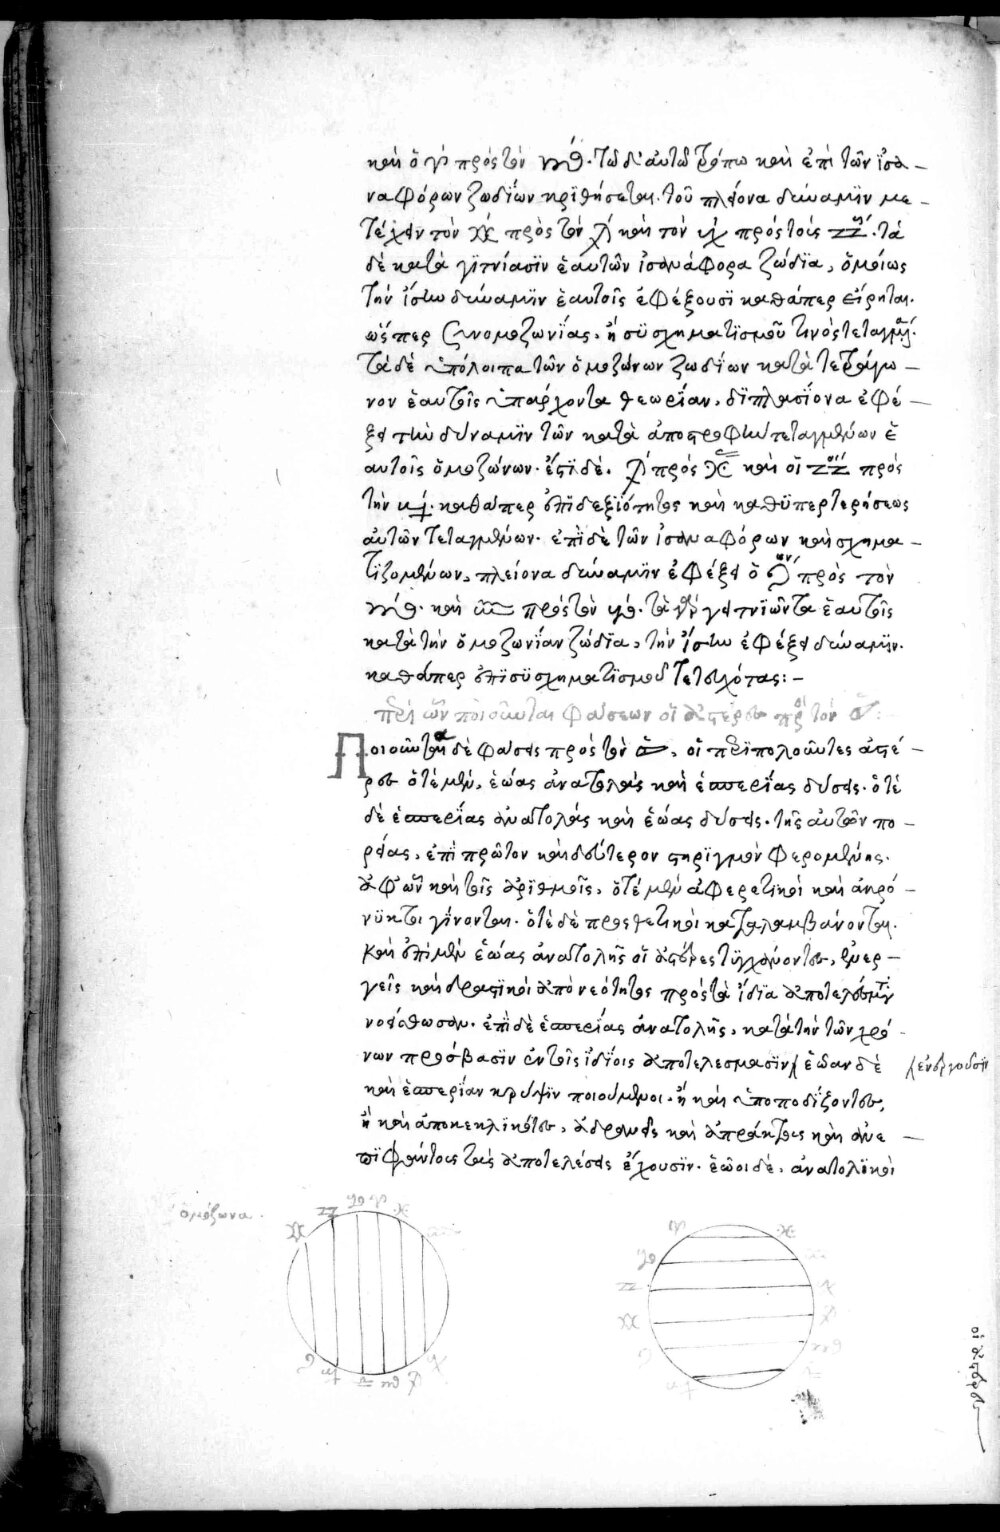 καὶ ὁ ♈ πρὸς τὸν ♍. τῶ δ' αὐτῶ τρόπω καὶ ἐπὶ τῶν ἰσα-
ναφόρων ζωδίων κριθήσεται. τοῦ πλείονα δύναμιν με-
τέχειν τὸν ♓ πρὸς τὸν ♐ καὶ τὸν πρὸς τοὺς ♊. τὰ
δὲ κατὰ γειτνίασιν ἑαυτῶν ἰσανάφορα ζώδια, ὁμοίως
τὴν ἴσην δύναμιν ἑαυτοῖς ἐφέξουσι καθάπερ εἴρηται.
ὥσπερ συνομοζωνίας, ἢ συσχηματισμοῦ τινὸς τεταγμένα.
τὰ δὲ ὑπόλοιπα τῶν ὁμοζώνων ζωδίων κατὰ τετράγω-
νον ἑαυτοῖς ὑπάρχοντα θεωρίαν, διπλασίονα ἐφέ-
ξει τὴν δύναμιν τῶν κατὰ ἀποστροφὴν τεταγμένων ἑ
αυτοῖς ὁμοζώνων. ἔστι δὲ. ♐ πρὸς ♓ καὶ οἱ ♊ πρὸς
τὴν ♍. καθάπερ ἐπὶ δεξιότητος καὶ καθυπερτερήσεως
αὐτῶν τεταγμένων. ἐπὶ δὲ τῶν ἰσαναφόρων καὶ σχημα-
τιζομένων, πλείονα δύναμιν ἐφέξει ὁ πρὸς τὸν
καὶ ♒ πρὸς τὸν ♉. τὰ γὰρ γειτνιῶντα ἑαυτοῖς
κατὰ τὴν ὁμοζωνίαν ζώδια, τὴν ἴσην ἐφέξει δύναμιν.
καθάπερ ἐπὶ συσχηματισμοῦ τετευχότας:-
περὶ ὧν ποιοῦνται φάσεων οἱ ἀστέρες πρὸς τὸν ☉:
Ποιοῦνται δὲ φάσεις πρὸς τὸν ☉, οἱ περιπολοῦντες ἀστέ-
ρες ὁτὲ μὲν, ἑώας ἀνατολὰς καὶ ἑσπερίας δύσεις. ὁτὲ
δὲ ἑσπερίας ἀνατολὰς καὶ ἑώας δύσεις. τῆς αὐτῶν πο-
ρείας, ἐπὶ πρῶτον καὶ δεύτερον στηριγμὸν φερομένης.
ἀφ' ὧν καὶ τοῖς ἀριθμοῖς, ὁτὲ μὲν ἀφαιρετικοὶ καὶ ἀκρό-
νυκτοι γίνονται. ὁτὲ δὲ προσθετικοὶ καταλαμβάνονται.
καὶ ἐπὶ μὲν ἑώας ἀνατολῆς οἱ ἀστέρες τυγχάνοντες, ἐνερ-
γεῖς καὶ δραστικοὶ ἀπὸ νεότητος πρὸς τὰ ἴδια ἀποτελέσματα
νοείσθωσαν. ἐπὶ δὲ ἑσπερίας ἀνατολῆς, κατὰ τὴν τῶν χρό-
νων πρόσβασιν ἐν τοῖς ἰδίοις ἀποτελέσμασιν ἑώαν δὲ
ἐνεργοῦσιν
καὶ ἑσπερίαν κρύψιν ποιούμενοι. ἢ καὶ ὑποποδίζοντες,
ἢ καὶ ἀποκεκλικότες, ἀδρανεῖς καὶ ἀπράκτους καὶ ἀνε-
πιφάντους τὰς ἀποτελέσεις ἔχουσιν. ἑῶοι δὲ, ἀνατολικοὶ
ὁμόζωνα.
οἱ ἀστέρες